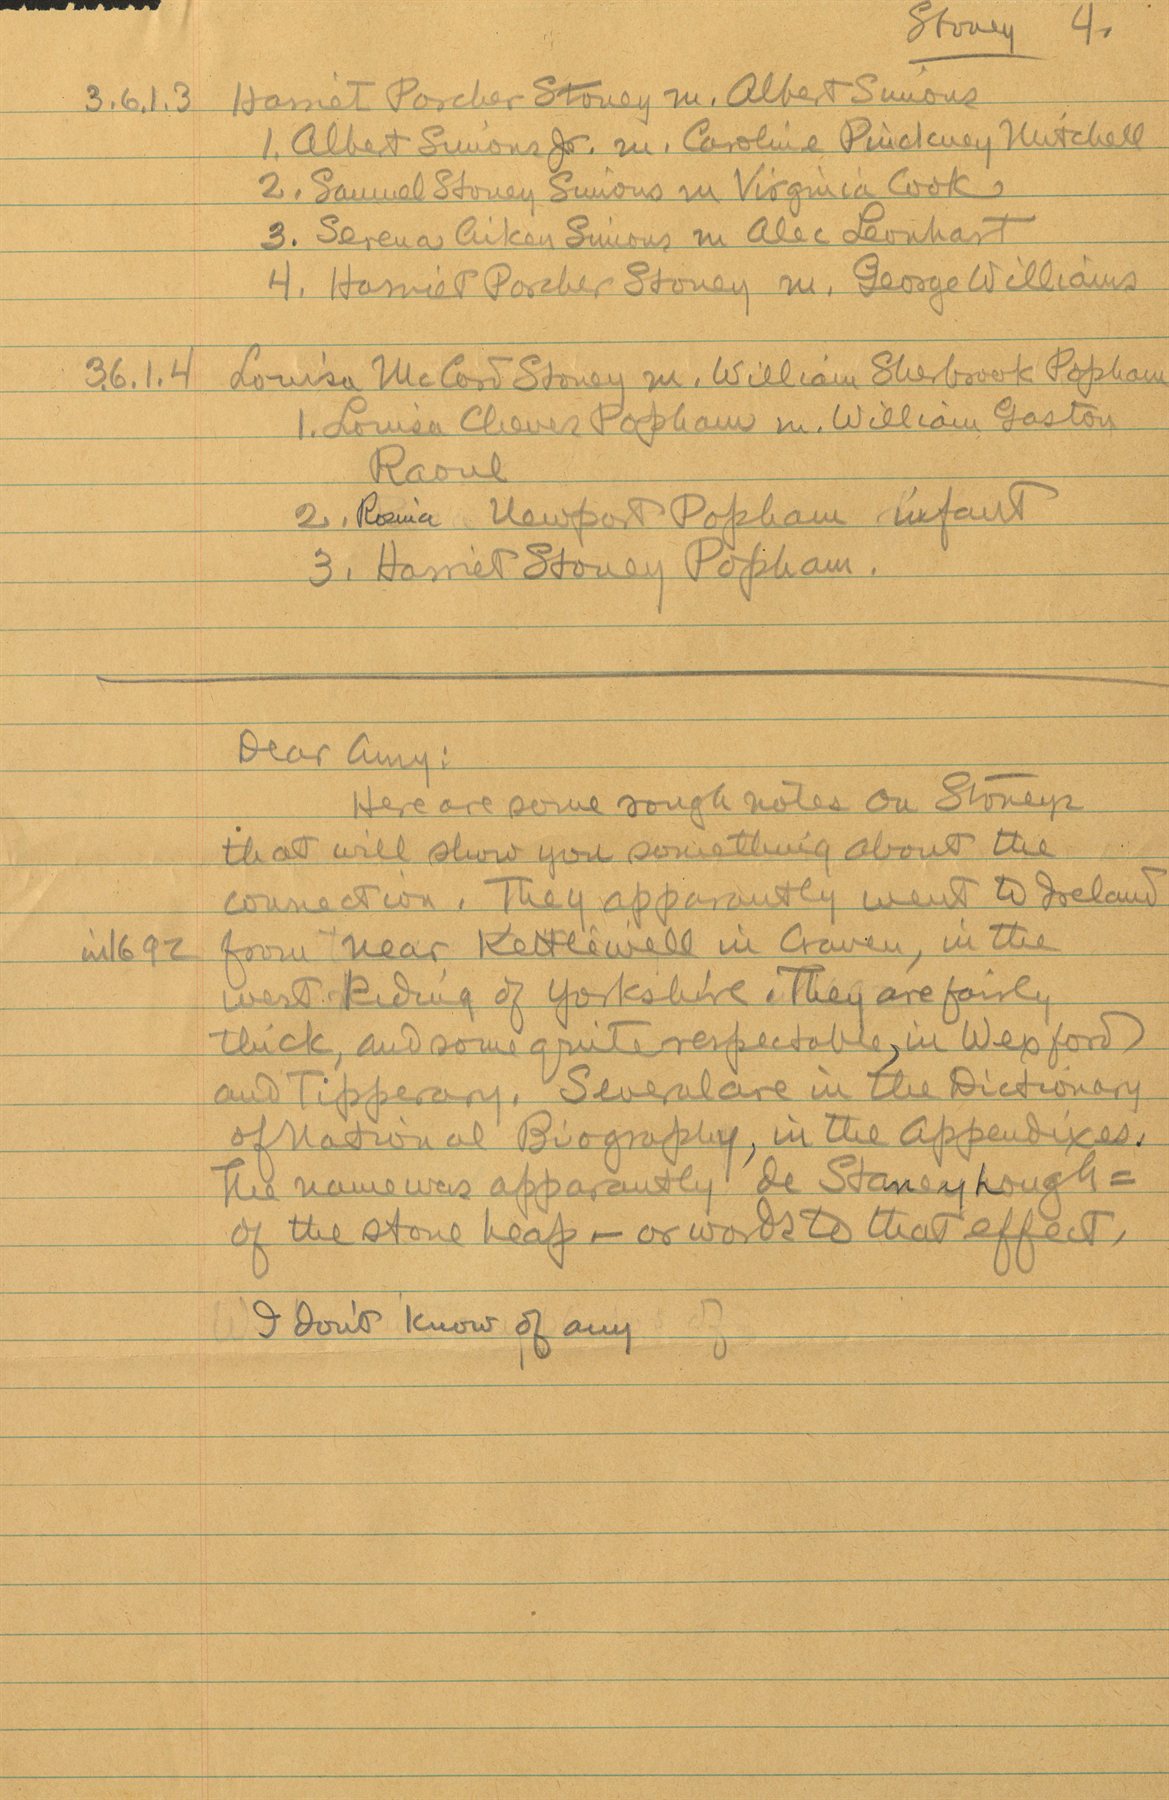 Stoney 4.
3.6.1.3 Harriet Porcher Stoney m. Albert Simons
1. Albert Simons Jr. m. Caroline Pinckney Mitchell
2. Samuel Stoney Simons m Virginia Cook.
3. Serena Aiken Simons m Alec Leonhart
4. Harriet Porcher Stoney m. George Williams
3.6.1.4 Louisa McCord Stoney m. William Sherbrook Popham
1. Louisa Cheves Popham m. William Gaston
Raoul
2. Rosina Newport Popham infant
3. Harriet Stoney Popham.
Dear Amy:
Here are some rough notes on Stoneys
that will show you something about the
connection. They apparantly went to Ireland
in 1692 from near Kettlewell in Craven, in the
west Riding of Yorkshire. They are fairly
thick, and some quite respectable, in Wexford
and Tipperary. Several are in the Dictionary
of National Biography, in the Appendixes.
The name was apparantly de Staneyhough =
of the stone heap – or words to that effect.
I don't know of any of